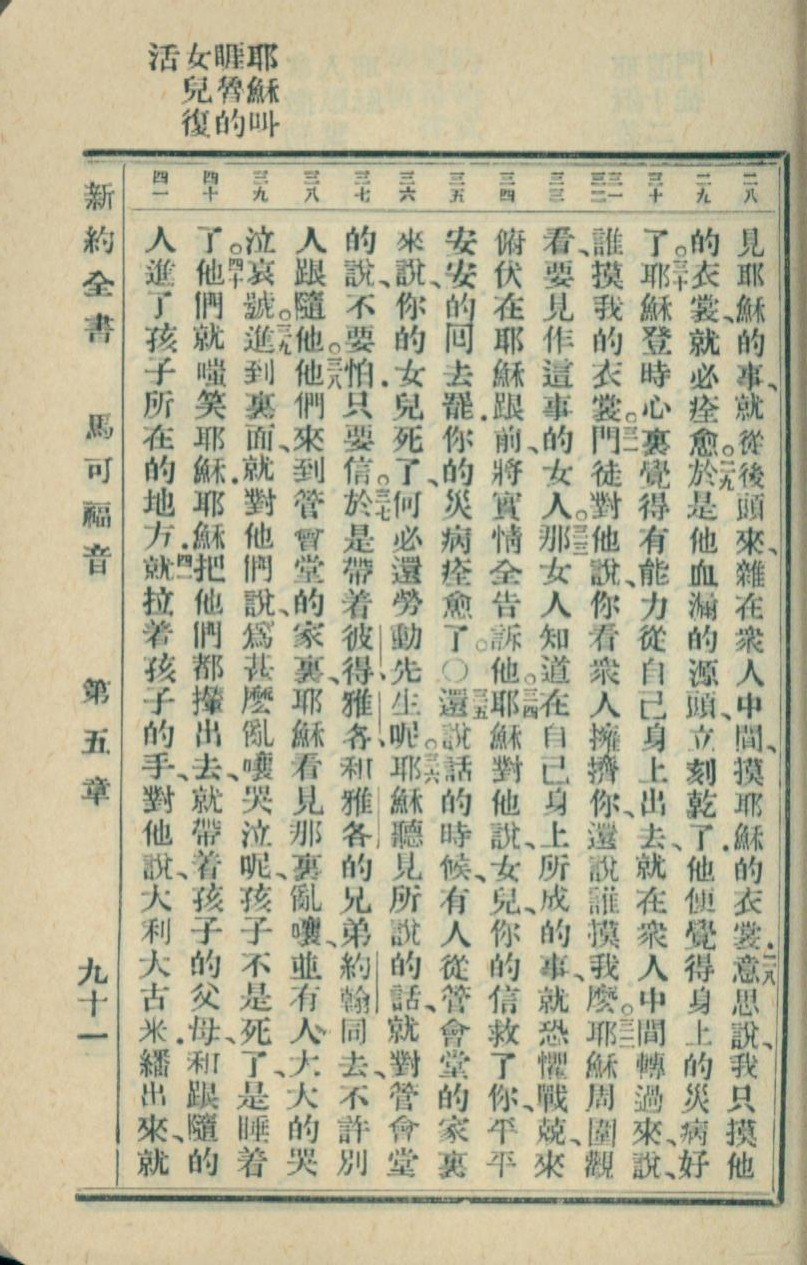 耶穌叫
睚魯的
女兒復
活
二八
二九
三十
三一
三二
三三
三四
三五
三六
三七
三八
三九
四十
四一
見耶穌的事、就從後頭來、雜在衆人中間、摸耶穌的衣裳.二八意思說、我只摸他
的衣裳、就必痊愈。二九於是他血漏的源頭、立刻乾了.他便覺得身上的災病好
了。三十耶穌登時心裏覺得有能力從自己身上出去、就在衆人中間轉過來說、
誰摸我的衣裳。三一門徒對他說、你看衆人擁擠你、還說誰摸我麼。三二耶穌周圍觀
看、要見作這事的女人。三三那女人知道在自己身上所成的事、就恐懼戰兢、來
俯伏在耶穌跟前、將實情全告訴他。三四耶穌對他說、女兒、你的信救了你、平平
安安的回去罷.你的災病痊愈了。〇三五還說話的時候、有人從管會堂的家裏
來說、你的女兒死了、何必還勞動先生呢。三六耶穌聽見所說的話、就對管會堂
的說、不要怕.只要信。三七於是帶着彼得、雅各、和雅各的兄弟約翰同去、不許別
人跟隨他。三八他們來到管會堂的家裏、耶穌看見那裏亂嚷、並有人大大的哭
泣哀號。三九進到裏面、就對他們說、爲甚麼亂嚷哭泣呢、孩子不是死了、是睡着
了。四十他們就嗤笑耶穌.耶穌把他們都攆出去、就帶着孩子的父母、和跟隨的
人進了孩子所在的地方.四一就拉着孩子的手、對他說、大利大古米.繙出來、就
新約全書　馬可福音　第五章　九十一